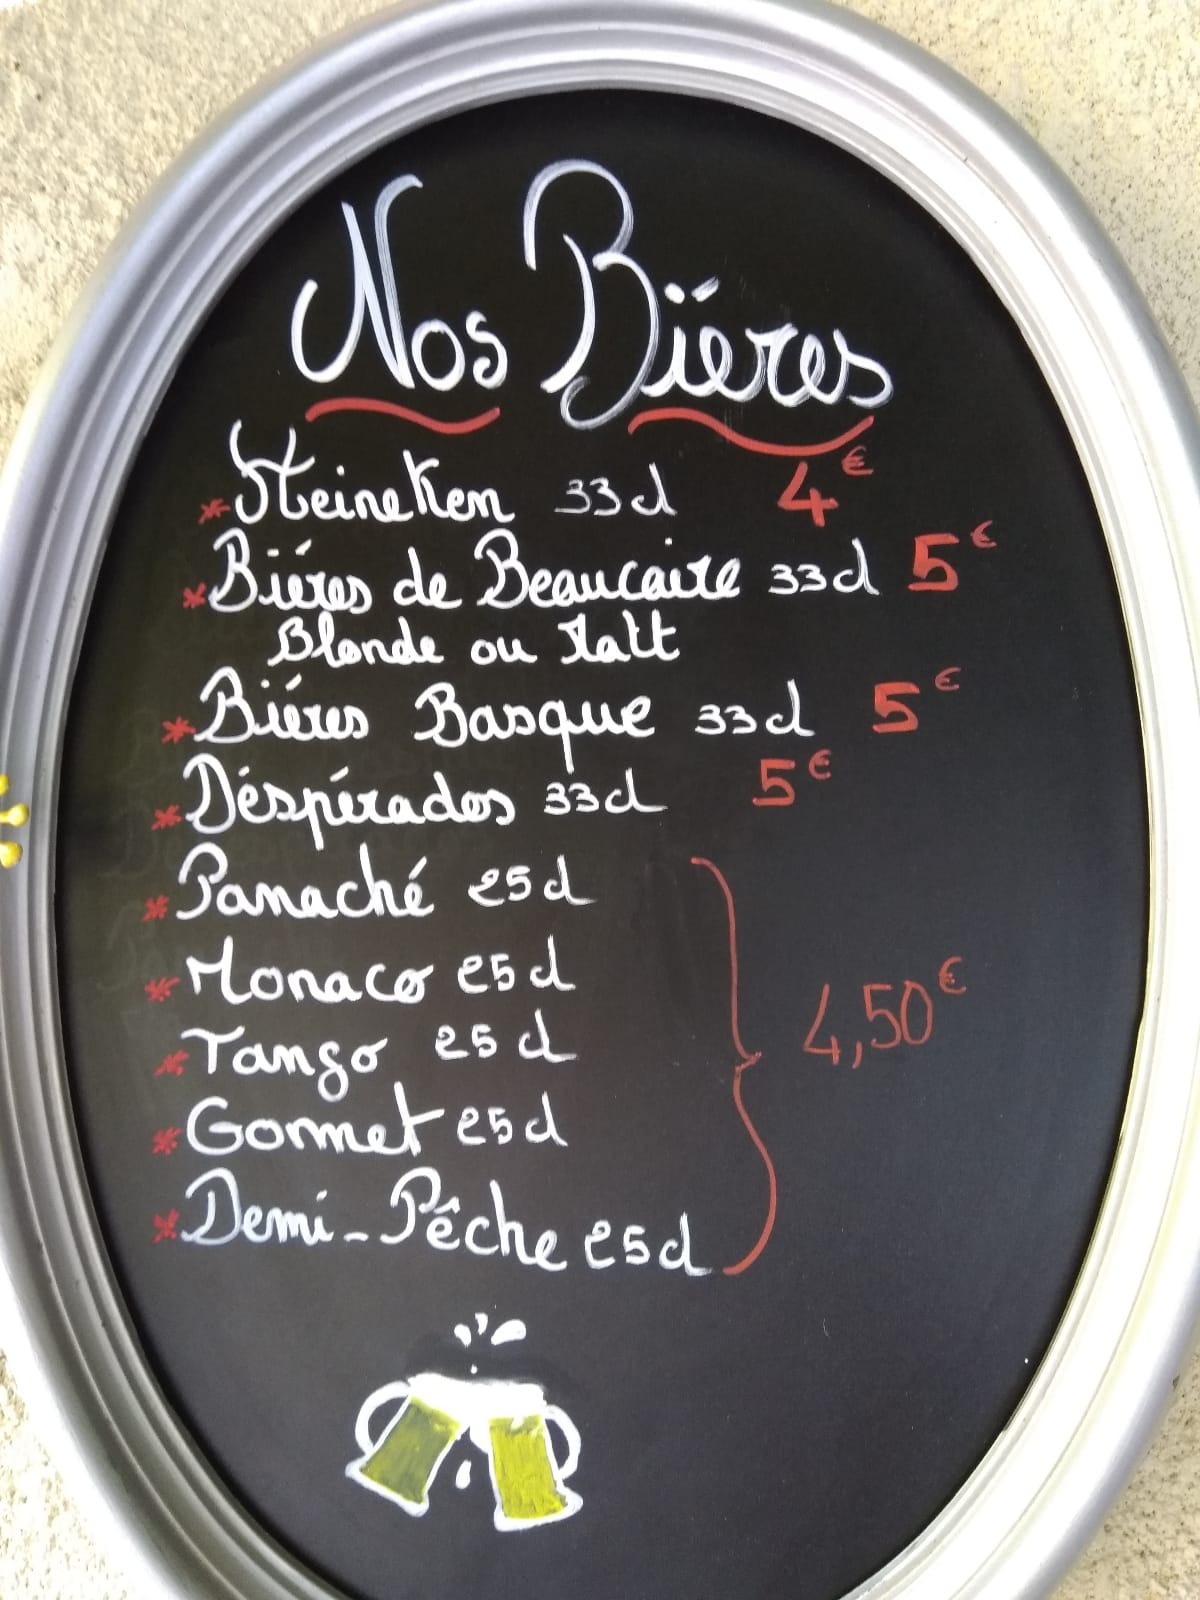 Nos Bïéres
Heineken 33cl 4€
Biéres de Beaucaire 33cl 5€
Blonde ou Malt
Biéres Basque 33cl 5€
Déspérados 33cl 5€
Panaché 25cl
Monaco 25cl
Tango 25cl
Gommet 25cl
Demi-Pêche 25cl
4,50€